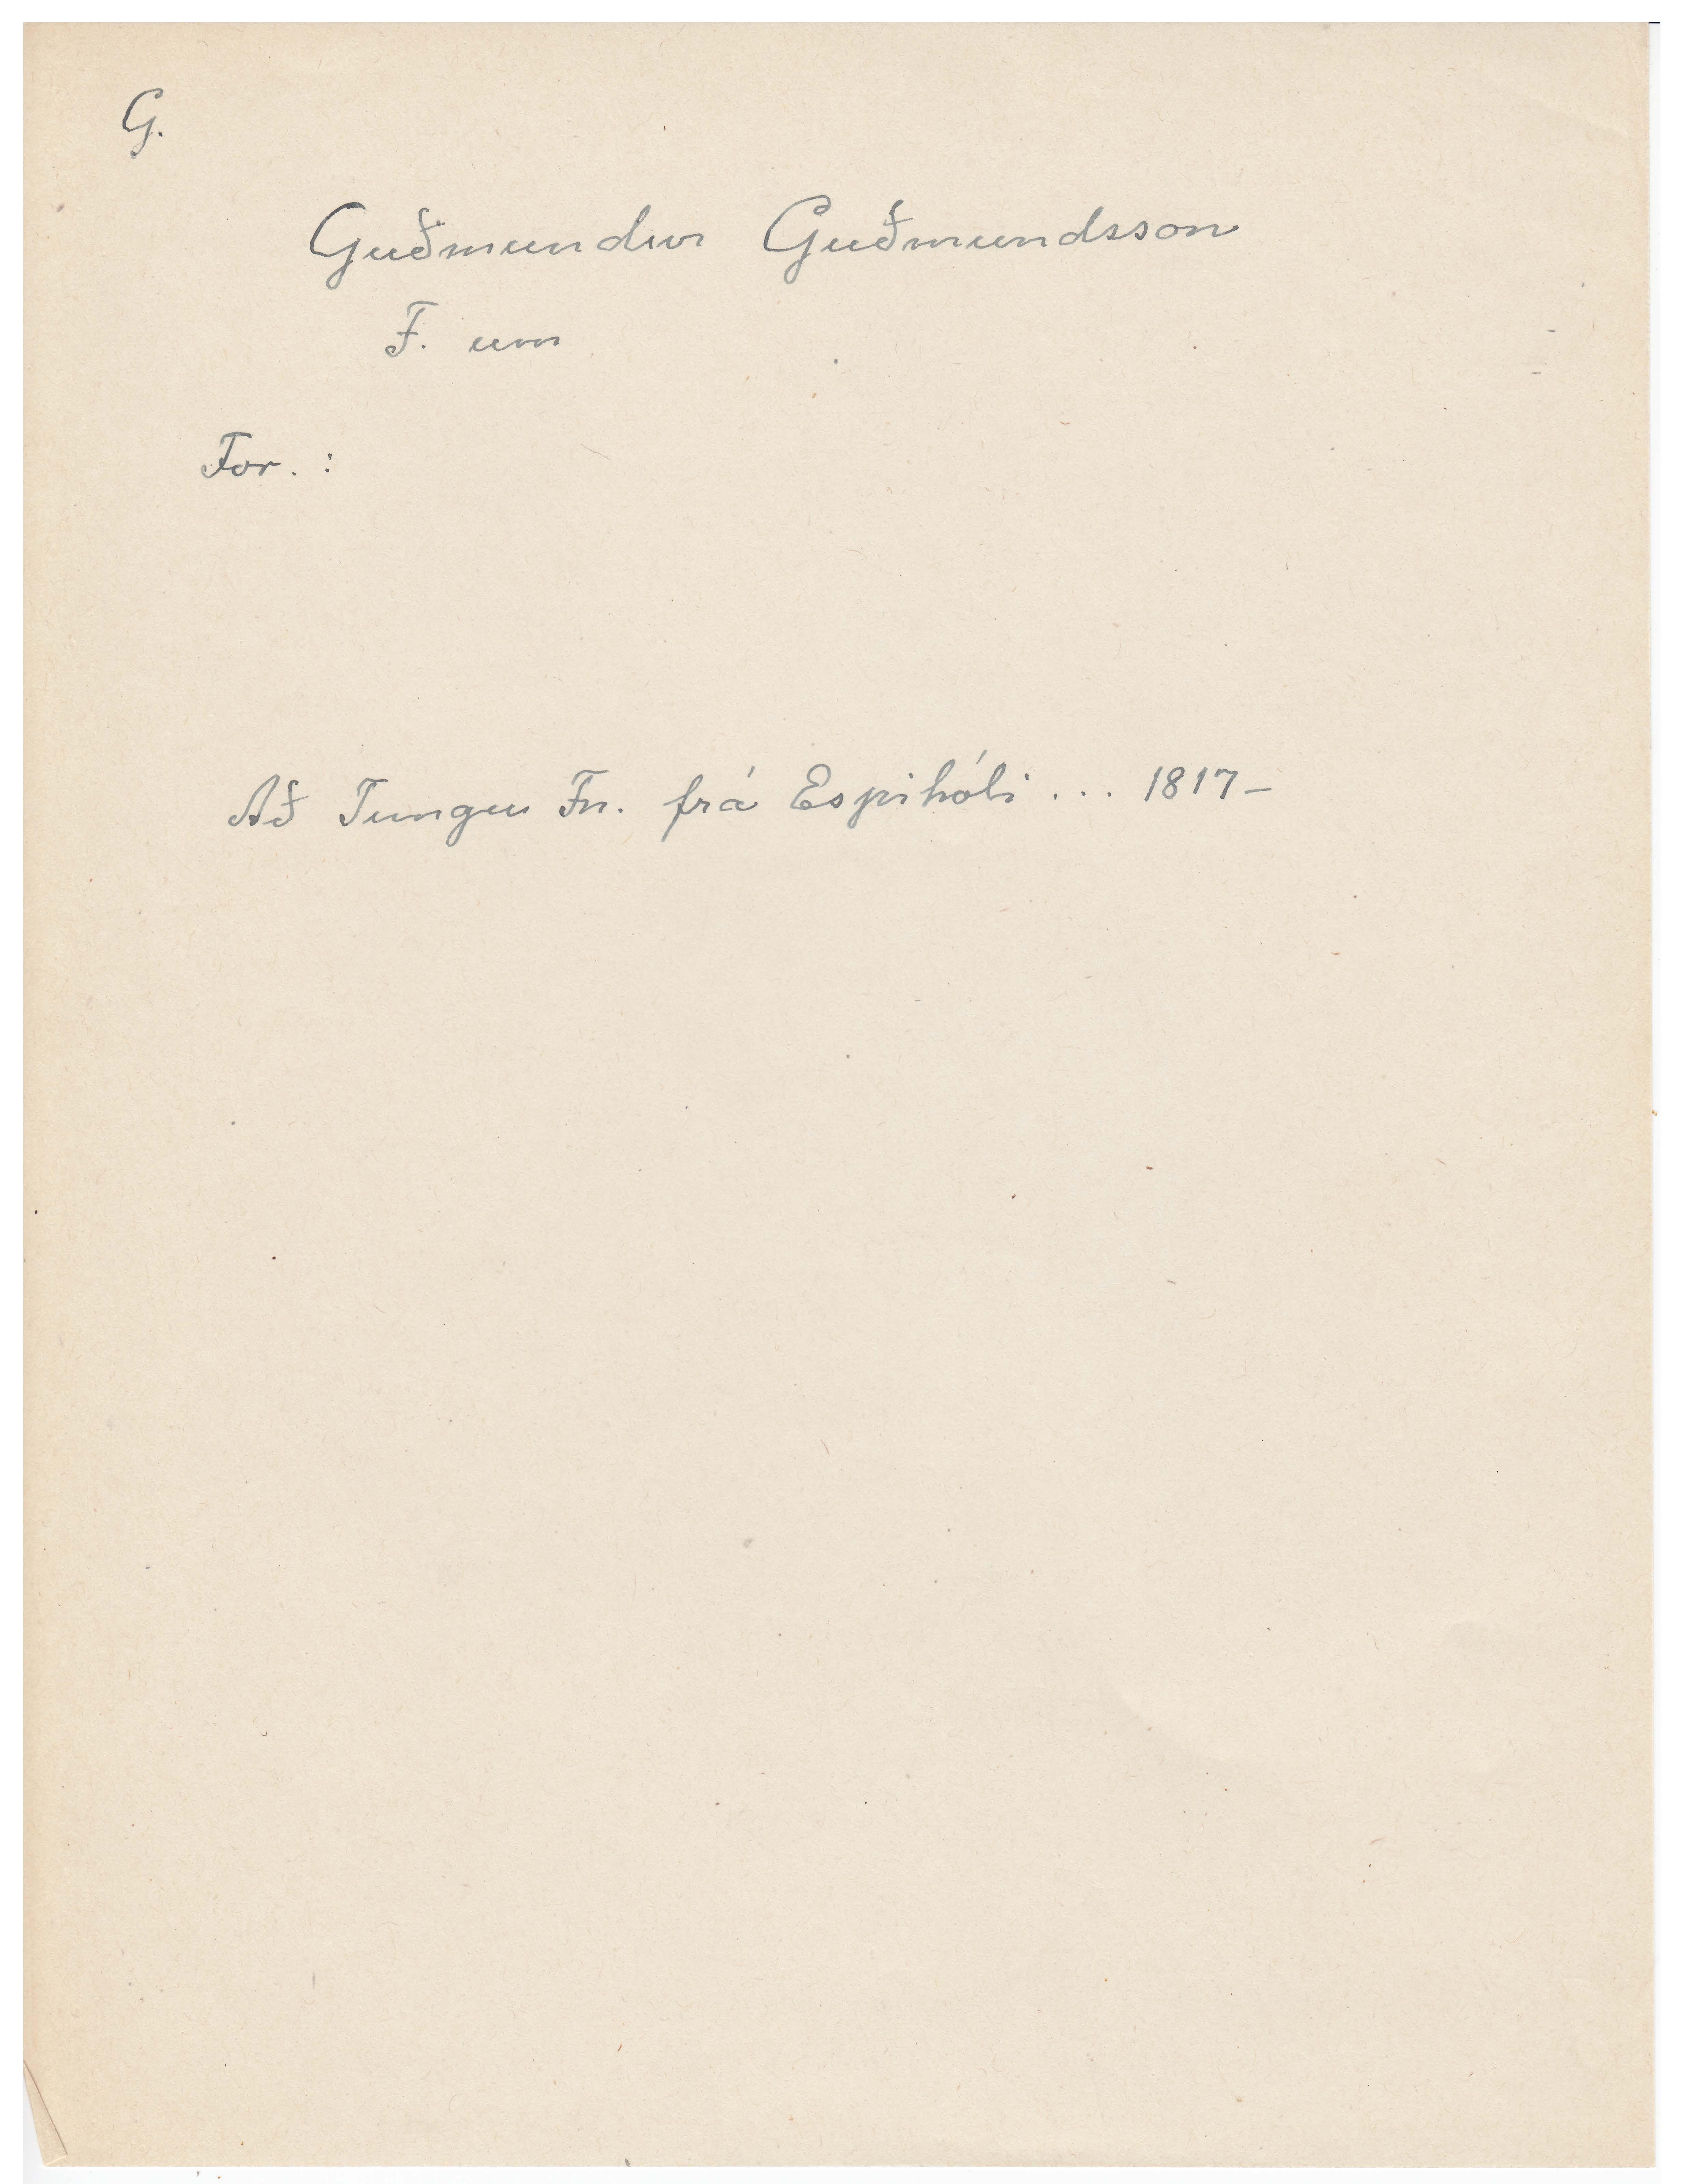 G.
Guðmundur Guðmundsson
F. um
For. :
Að Tungu Fn. frá Espihóli ... 1817-